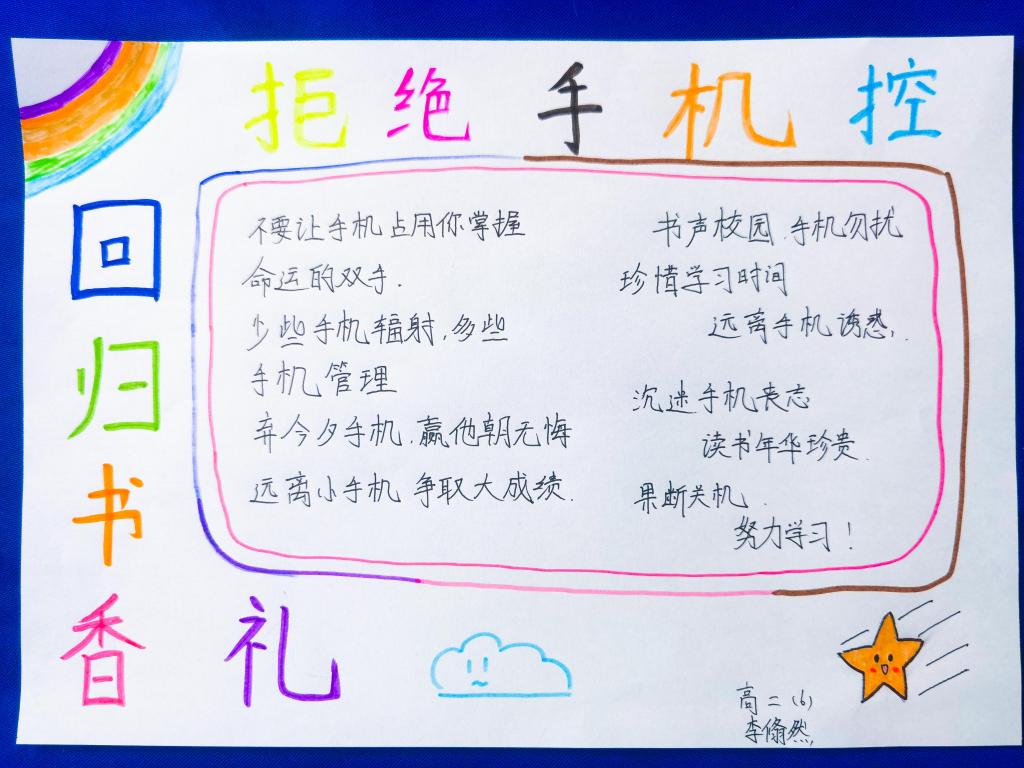 拒绝手机控
回归书香礼
不要让手机占用你掌握
命运的双手.
少些手机辐射,多些
手机管理
弃今夕手机.赢他朝无悔
远离小手机 争取大成绩.
书声校园.手机勿扰
珍惜学习时间
远离手机诱惑,.
沉迷手机丧志
读书年华珍贵.
果断关机.
努力学习!
高二(6)
李翛然.